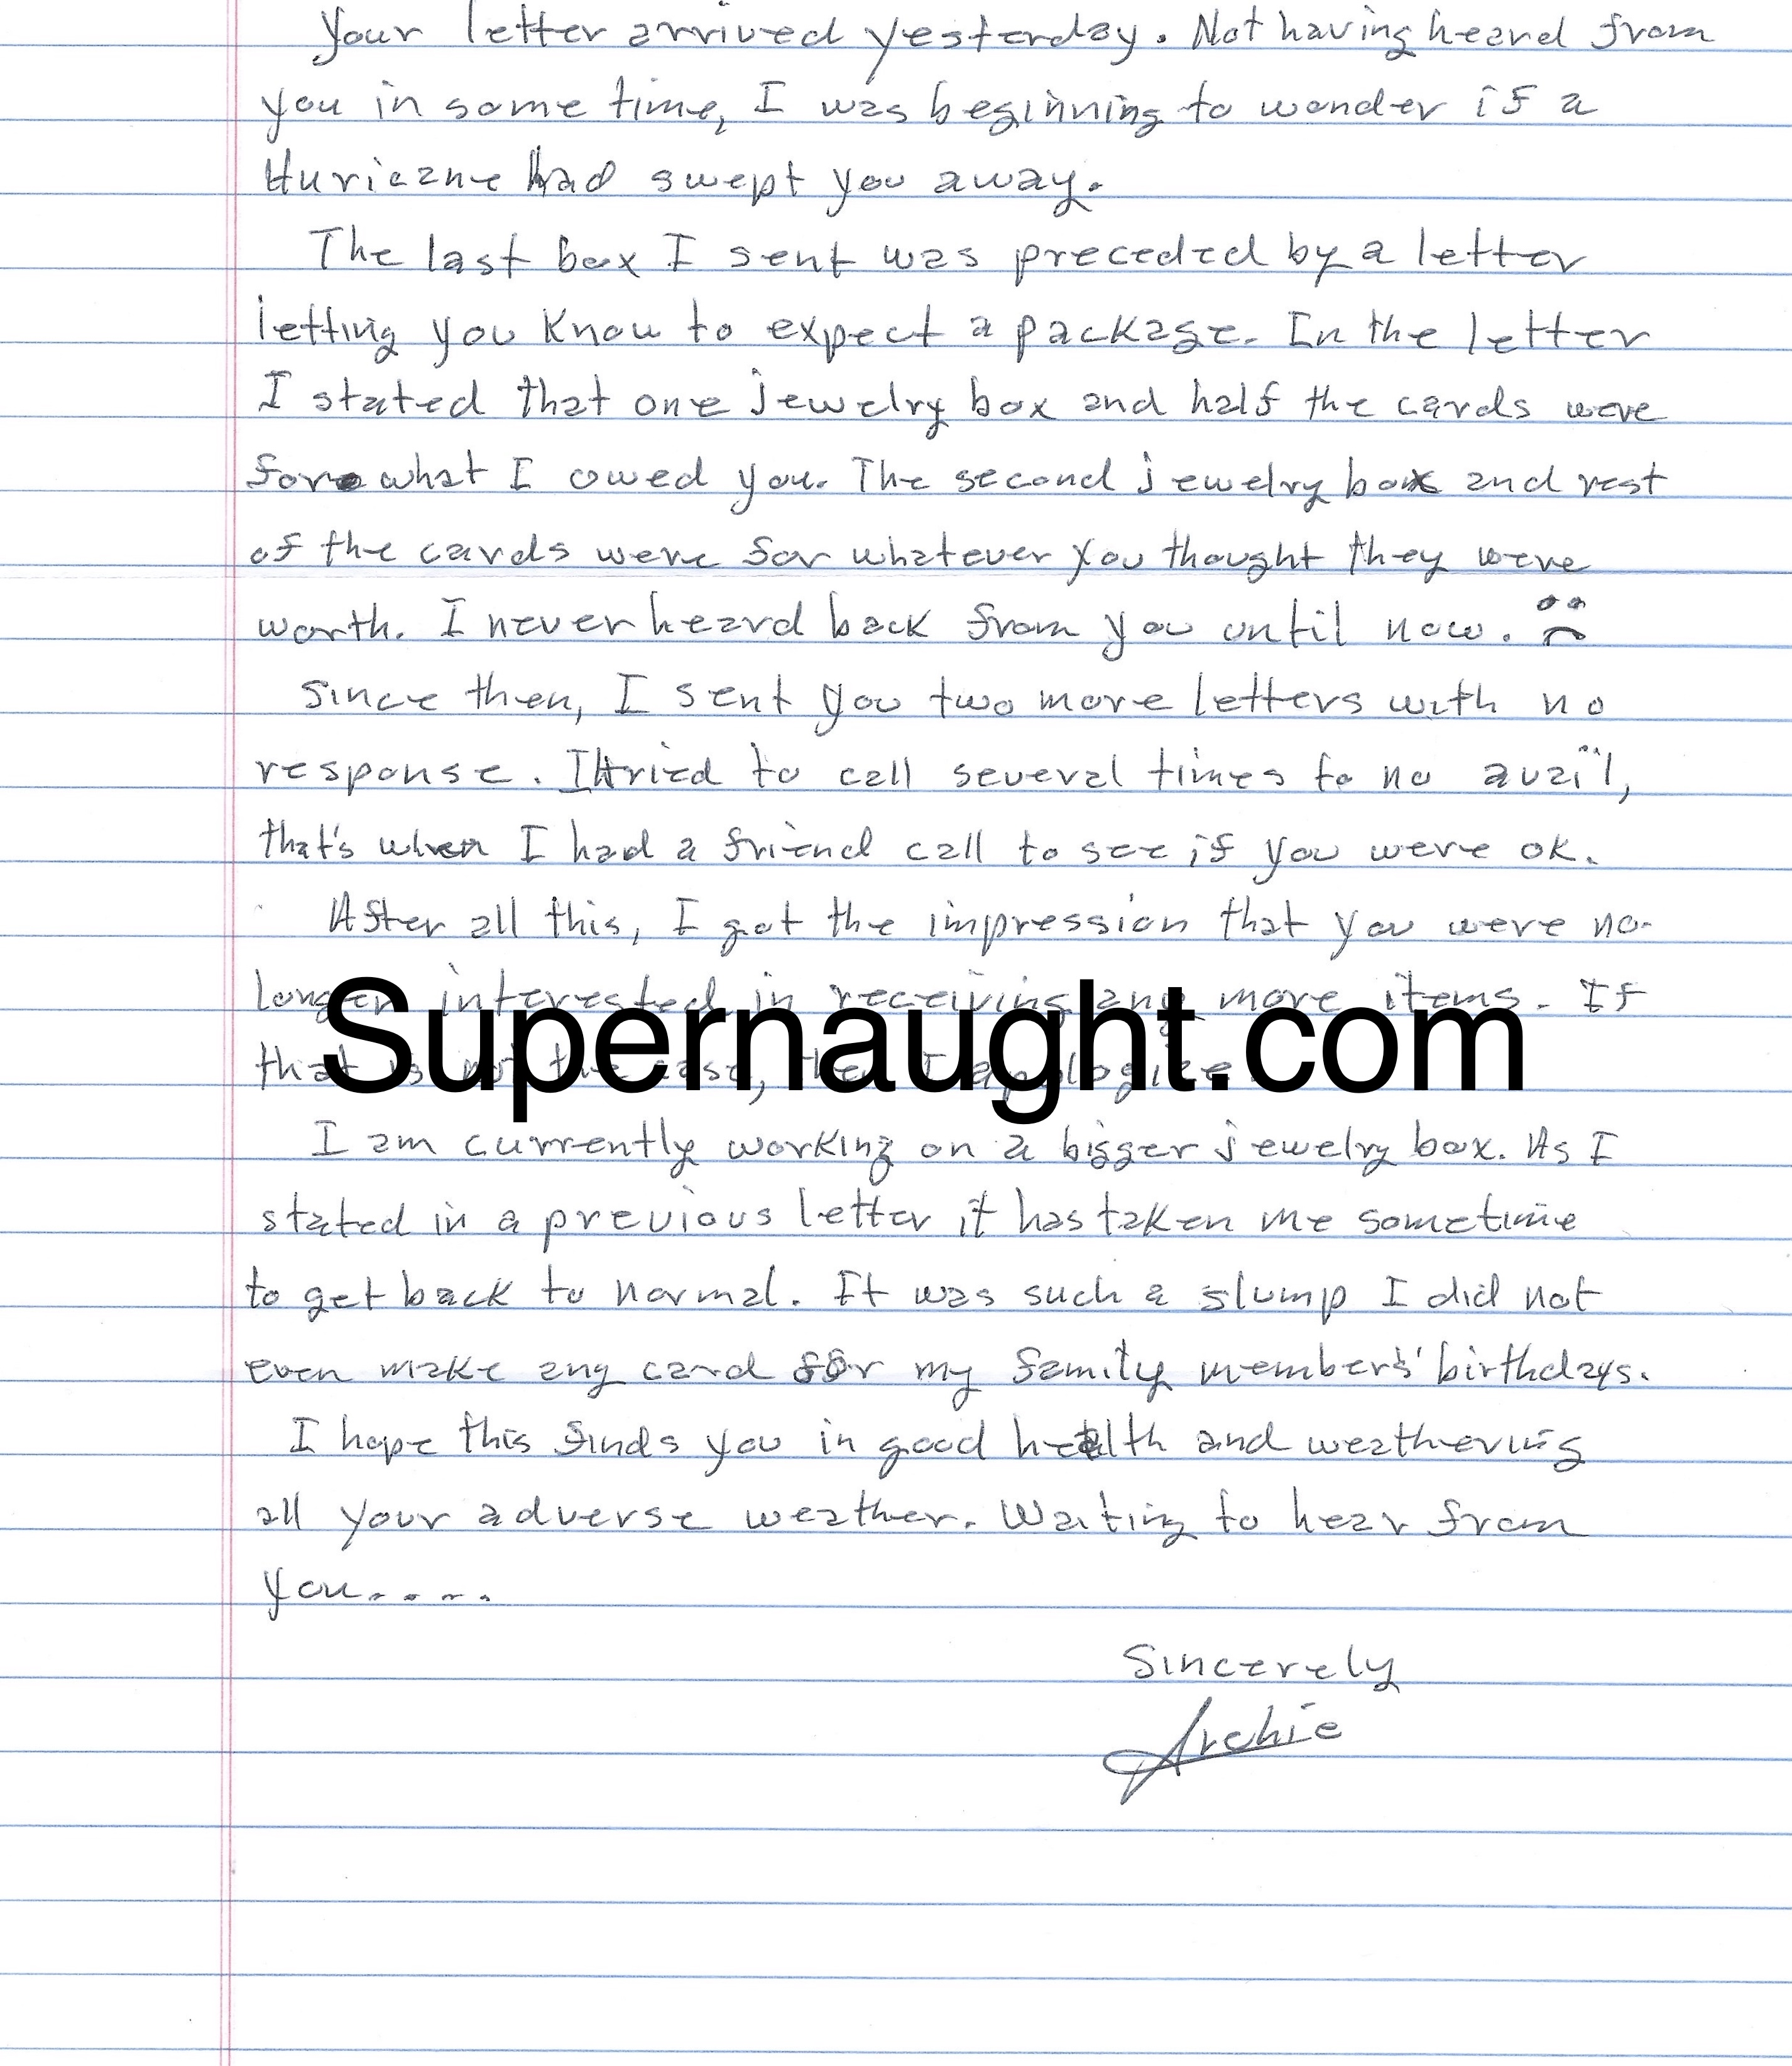 Your letter arrived yesterday. Not having heard from
you in some time, I was beginning to wonder if a
Huricane had swept you away.
The last box I sent was preceded by a letter
letting you know to expect a package. In the letter
I stated that one jewelry box and half the cards were
for what I owed you. The second jewelry box and rest
of the cards were for whatever you thought they were
worth. I never heard back from you until now.
Since then, I sent you two more letters with no
response. I tried to call several times to no avail,
that's when I had a friend call to see if you were ok.
After all this, I got the impression that you were no-
longer interested in receiving any more items. If
that is not the case, then I apologize.
Supernaught.com
I am currently working on a bigger jewelry box. As I
stated in a previous letter it has taken me sometime
to get back to normal. It was such a slump I did not
even make any card for my family members' birthdays.
I hope this finds you in good health and weathering
all your adverse weather. Waiting to hear from
you....
Sincerely
Archie